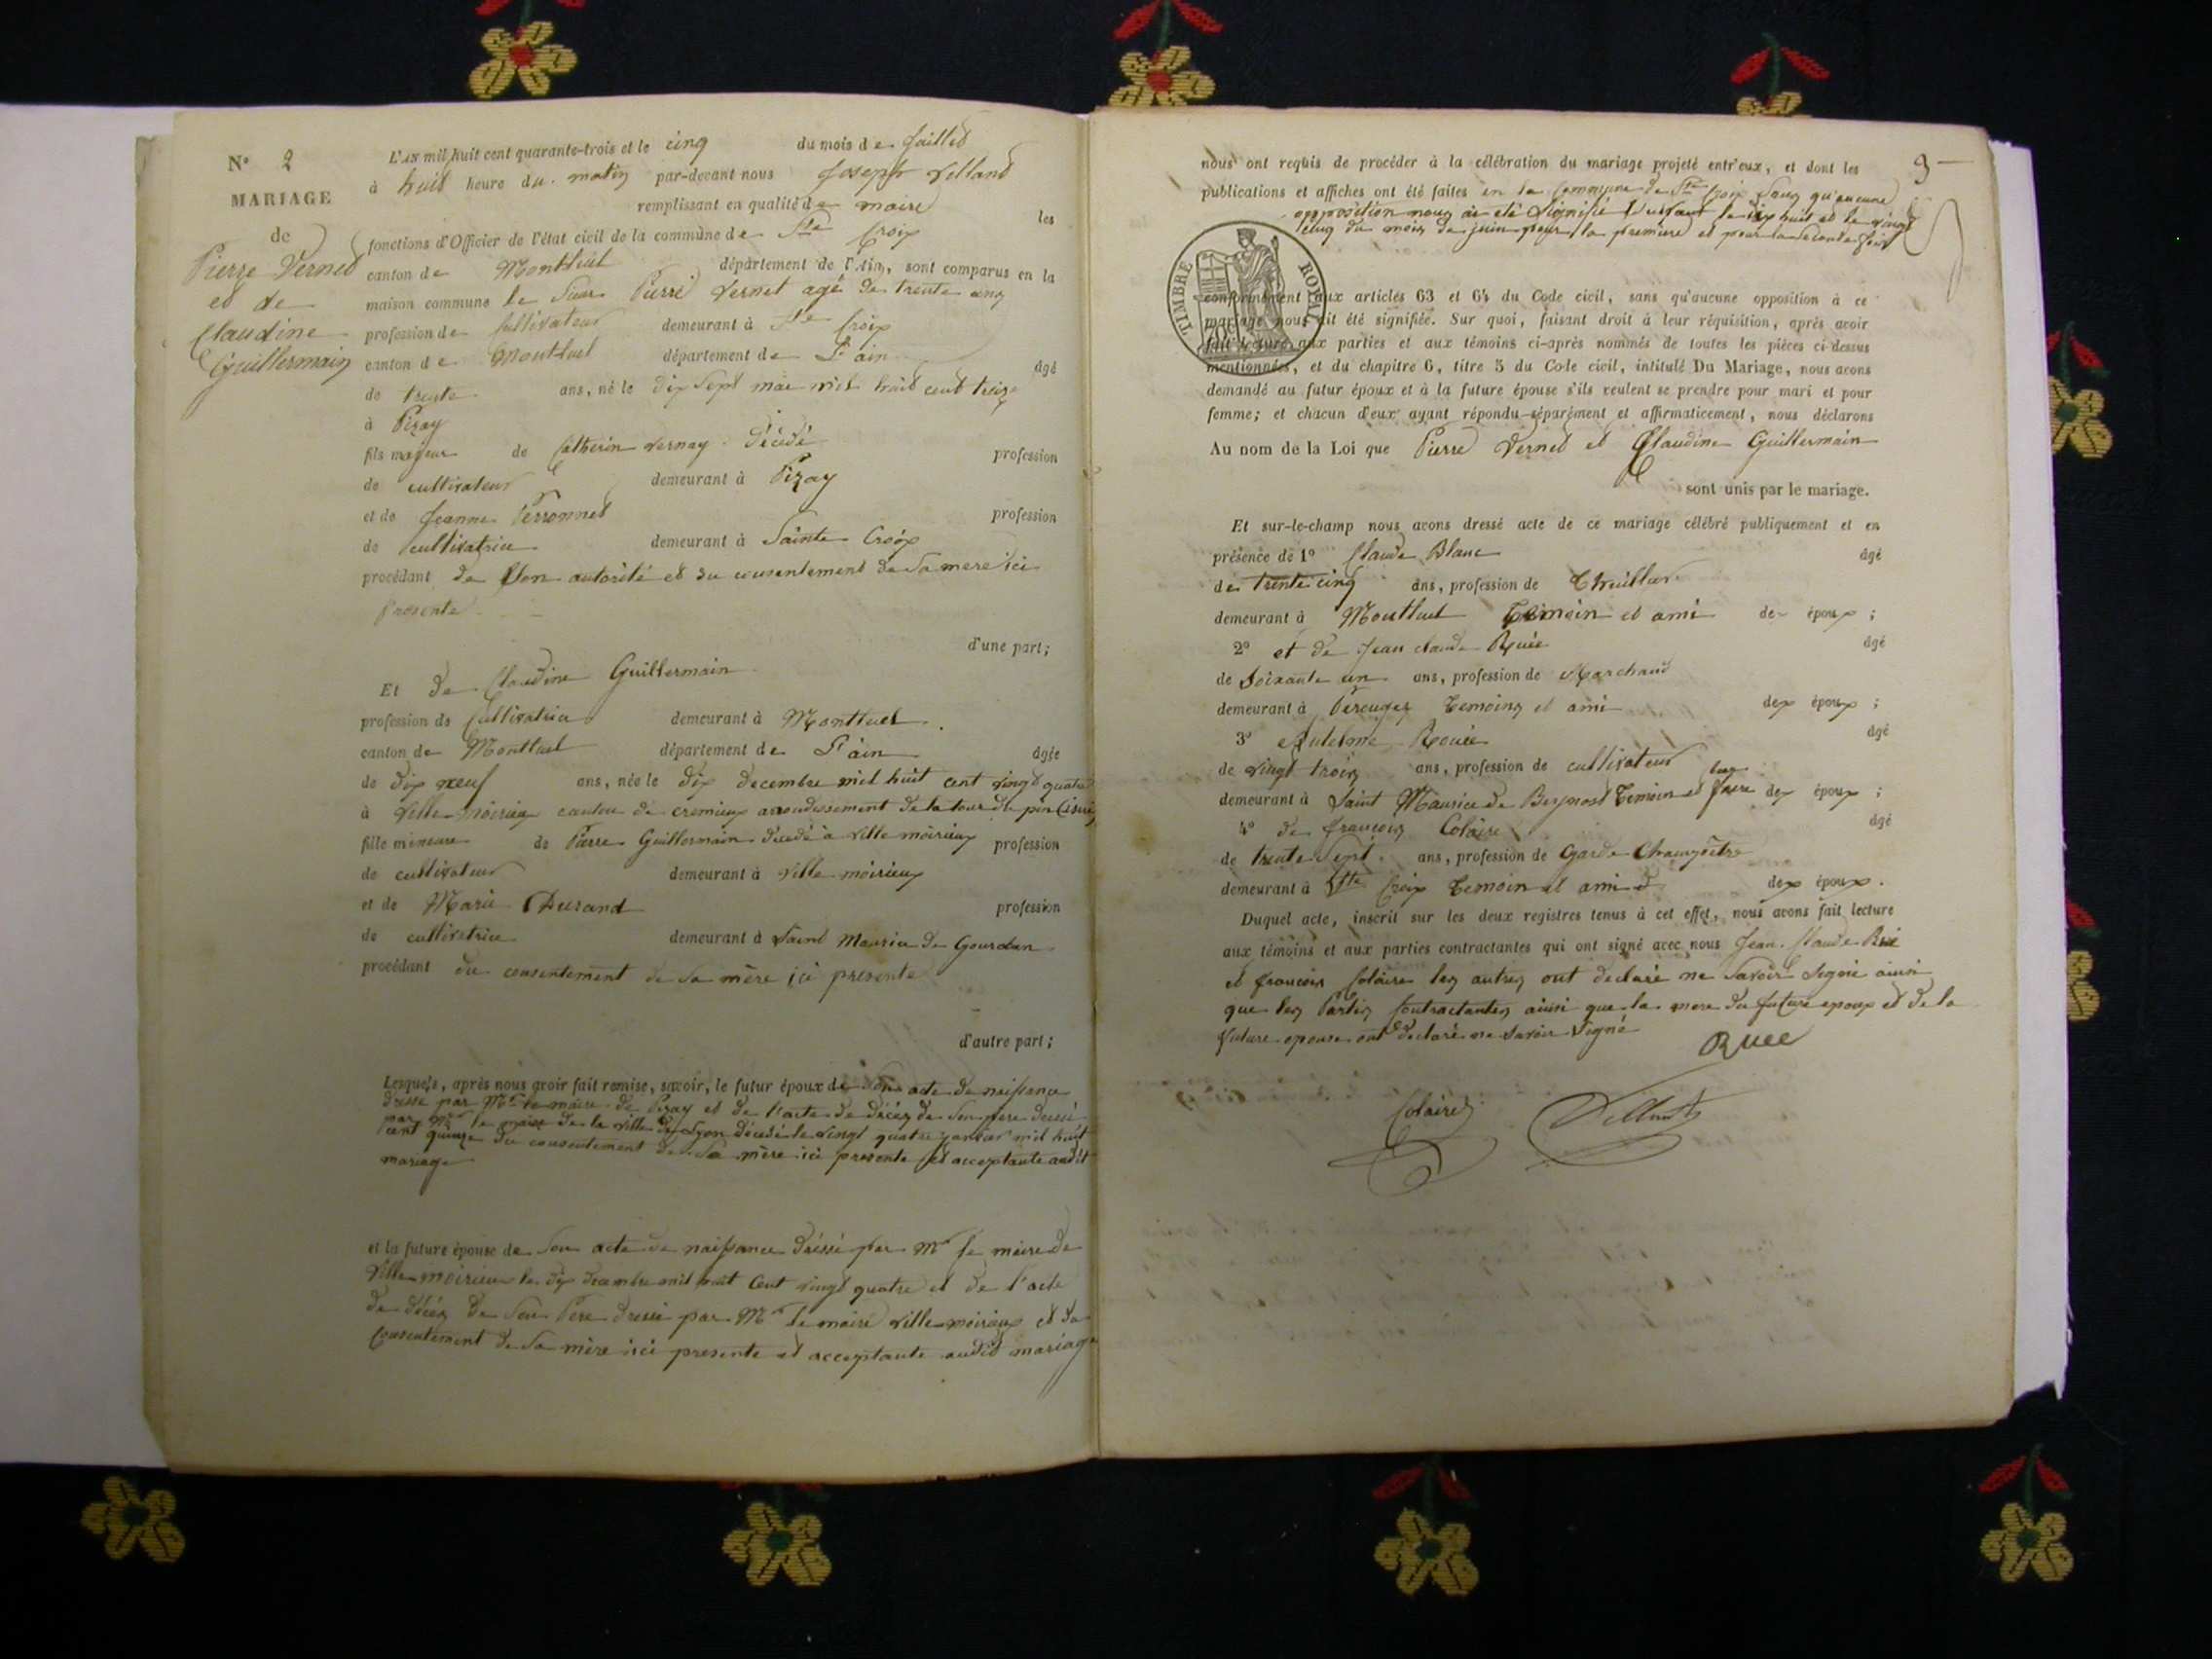 N° 2
MARIAGE
de
Pierre Vernet
et de
Claudine
Guillermain
L'AN mil huit cent quarante-trois et le cinq du mois de Juillet
à huit heure du matin par-devant nous Joseph
remplissant en qualité de maire les
fonctions d'Officier de l'état civil de la commune de Ste Croix
canton de Montluel département de l'Ain, sont comparus en la
maison commune le Sieur Pierre Vernet agé de trente cinq
profession de Cultivateur demeurant à Ste Croix
canton de Montluel département de L'ain âgé
de trente ans, né le dix Sept mai mil huit cent treize
à Pizay
fils majeur de Catherin Vernay décédé profession
de cultivateur demeurant à Pizay
et de Jeanne Perronnet profession
de cultivatrice demeurant à Sainte Croix
procédant de Son autorité et du consentement de Sa mere ici
presente
d'une part;
Et de Claudine Guillermain
profession de Cultivatrice demeurant à Montluel
canton de Montluel département de L'ain âgée
de dix neuf ans, née le dix decembre mil huit cent vingt quatre
à Ville-moirieu canton de cremieux arrondissement de la tour du pin (isère)
fille mineure de Pierre Guillermain décedé à Ville moirieux profession
de cultivateur demeurant à Ville moirieux
et de Marie Durand profession
de cultivatrice demeurant à Saint Maurice de Gourdan
procédant du consentement de Sa mère ici presente
d'autre part;
Lesquels, après nous avoir fait remise, savoir, le futur époux de Son acte de naissance
dressé par Mr le maire de Pizay et de l'acte de décéz de Son pere dressé
par Mr le maire de la ville de Lyon décédé le vingt quatre janvier mil huit
cent quinze du consentement de Sa mère ici presente et acceptante audit
mariage
et la future épouse de Son acte de naissance dréssé par Mr le maire de
Ville-moirieu le dix decembre mil huit Cent vingt quatre et de l'acte
de décéz de Son Père dressé par Mr le maire Ville-moirieux et du
Consentement de Sa mère ici presente et acceptante audit mariage
3
nous ont requis de procéder à la célébration du mariage projeté entr'eux, et dont les
publications et affiches ont été faites en la commune de Ste Croix Sans qu'aucune
opposition nous ai eté Signifié Suivant le dix huit et le vingt
cinq du mois de juin pour la premiere et pour la Seconde fois
TIMBRE ROYAL
conformément aux articles 63 et 64 du Code civil, sans qu'aucune opposition à ce
mariage nous ait été signifiée. Sur quoi, faisant droit à leur réquisition, après avoir
fait lecture aux parties et aux témoins ci-après nommés de toutes les pièces ci-dessus
mentionnées, et du chapitre 6, titre 5 du Code civil, intitulé Du Mariage, nous avons
demandé au futur époux et à la future épouse s'ils veulent se prendre pour mari et pour
femme; et chacun d'eux ayant répondu séparément et affirmativement, nous déclarons
Au nom de la Loi que Pierre Vernet et Claudine Guillermain
sont unis par le mariage.
Et sur-le-champ nous avons dressé acte de ce mariage célébré publiquement et en
présence de 1° Claude Blanc âgé
de trente cinq ans, profession de
demeurant à Montluel temoin et ami des époux ;
2° et de Jean claude Ruée âgé
de Soixante un ans, profession de Marchand
demeurant à Perouges Temoins et ami des époux ;
3° Antelme Rouée âgé
de vingt trois ans, profession de cultivateur
demeurant à Saint Maurice de Beynost Temoin et frere des époux ;
4° de francois Colaire âgé
de trente Sept ans, profession de Garde Champêtre
demeurant à Ste Croix Temoin et ami des époux.
Duquel acte, inscrit sur les deux registres tenus à cet effet, nous avons fait lecture
aux témoins et aux parties contractantes qui ont signé avec nous Jean Claude Rué
et francois Colaire les autres ont declaré ne Savoir Signé ainsi
que les Parties Contractantes ainsi que la mere du future epoux et de la
future epouse ont declaré ne Savoir Signé
Ruee
Colaire